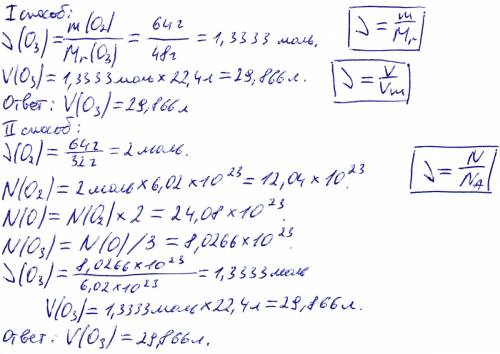 I способ:
ν(O₃) = m(O₂)/Mr(O₃) = 64г/48г = 1,3333 моль.
ν = m/Mr
V(O₃) = 1,3333 моль × 22,4л = 29,866л.
ν = V/Vm
Ответ: V(O₃) = 29,866л
II способ:
ν(O₂) = 64г/32г = 2 моль.
N(O₂) = 2 моль × 6,02 × 10²³ = 12,04 × 10²³.
ν = N/NA
N(O) = N(O₂) × 2 = 24,08 × 10²³.
N(O₃) = N(O)/3 = 8,0266 × 10²³.
ν(O₃) = 8,0266 × 10²³/6,02 × 10²³ = 1,3333 моль
V(O₃) = 1,3333 моль × 22,4л = 29,866л.
Ответ: V(O₃) = 29,866л.